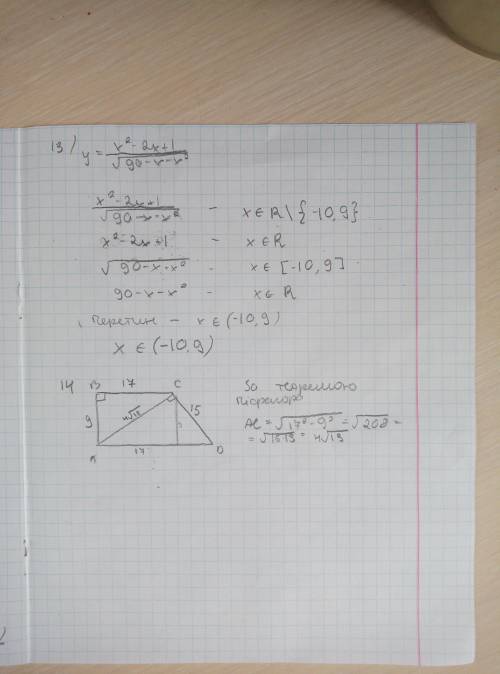 13) y = x² - 2x + 1 / √90 - x - x²
x² - 2x + 1 / √90 - x - x² - x ∈ R \ {-10, 9}
x² - 2x + 1 - x ∈ R
√90 - x - x² - x ∈ [-10, 9]
90 - x - x² - x ∈ R
Перетин - x ∈ (-10, 9)
x ∈ (-10, 9)
14 B 17 C
9 4√13 15
A 17 D
За теоремою
Піфагора
AC = √17² - 9² = √208 =
= √16·13 = 4√13